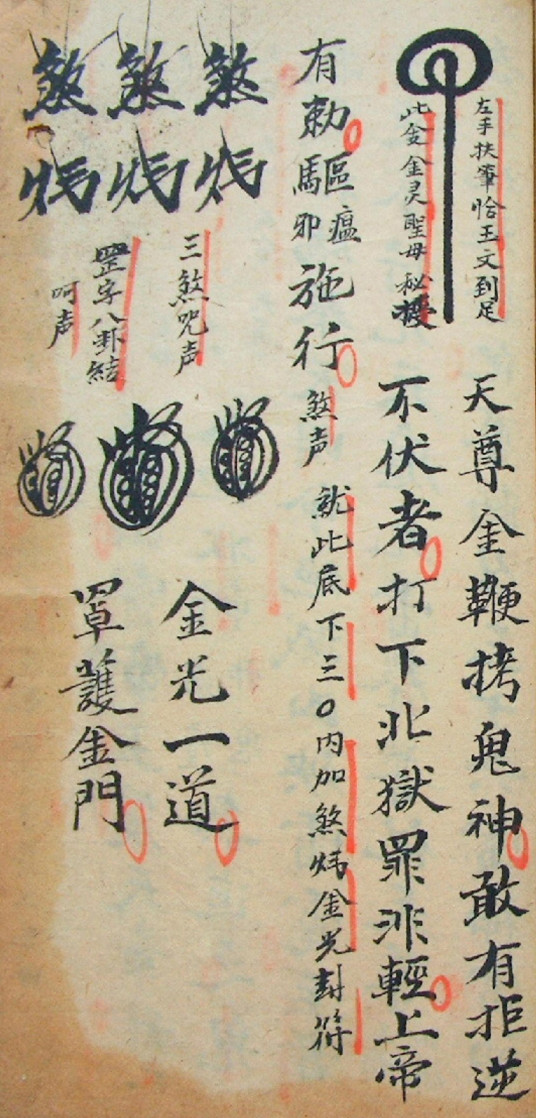 左手扶筆恰玉文到足
天尊金鞭拷鬼神敢有拒逆
此金灵聖母秘
不伏者打下北獄罪非輕上帝
有勅驅瘟
馭邪
施行
煞声
就此底下三〇内加煞炜金光封符
煞煞煞
炜炜炜
三煞咒声
罡字八卦結
呵声
金光一道
罩護金門